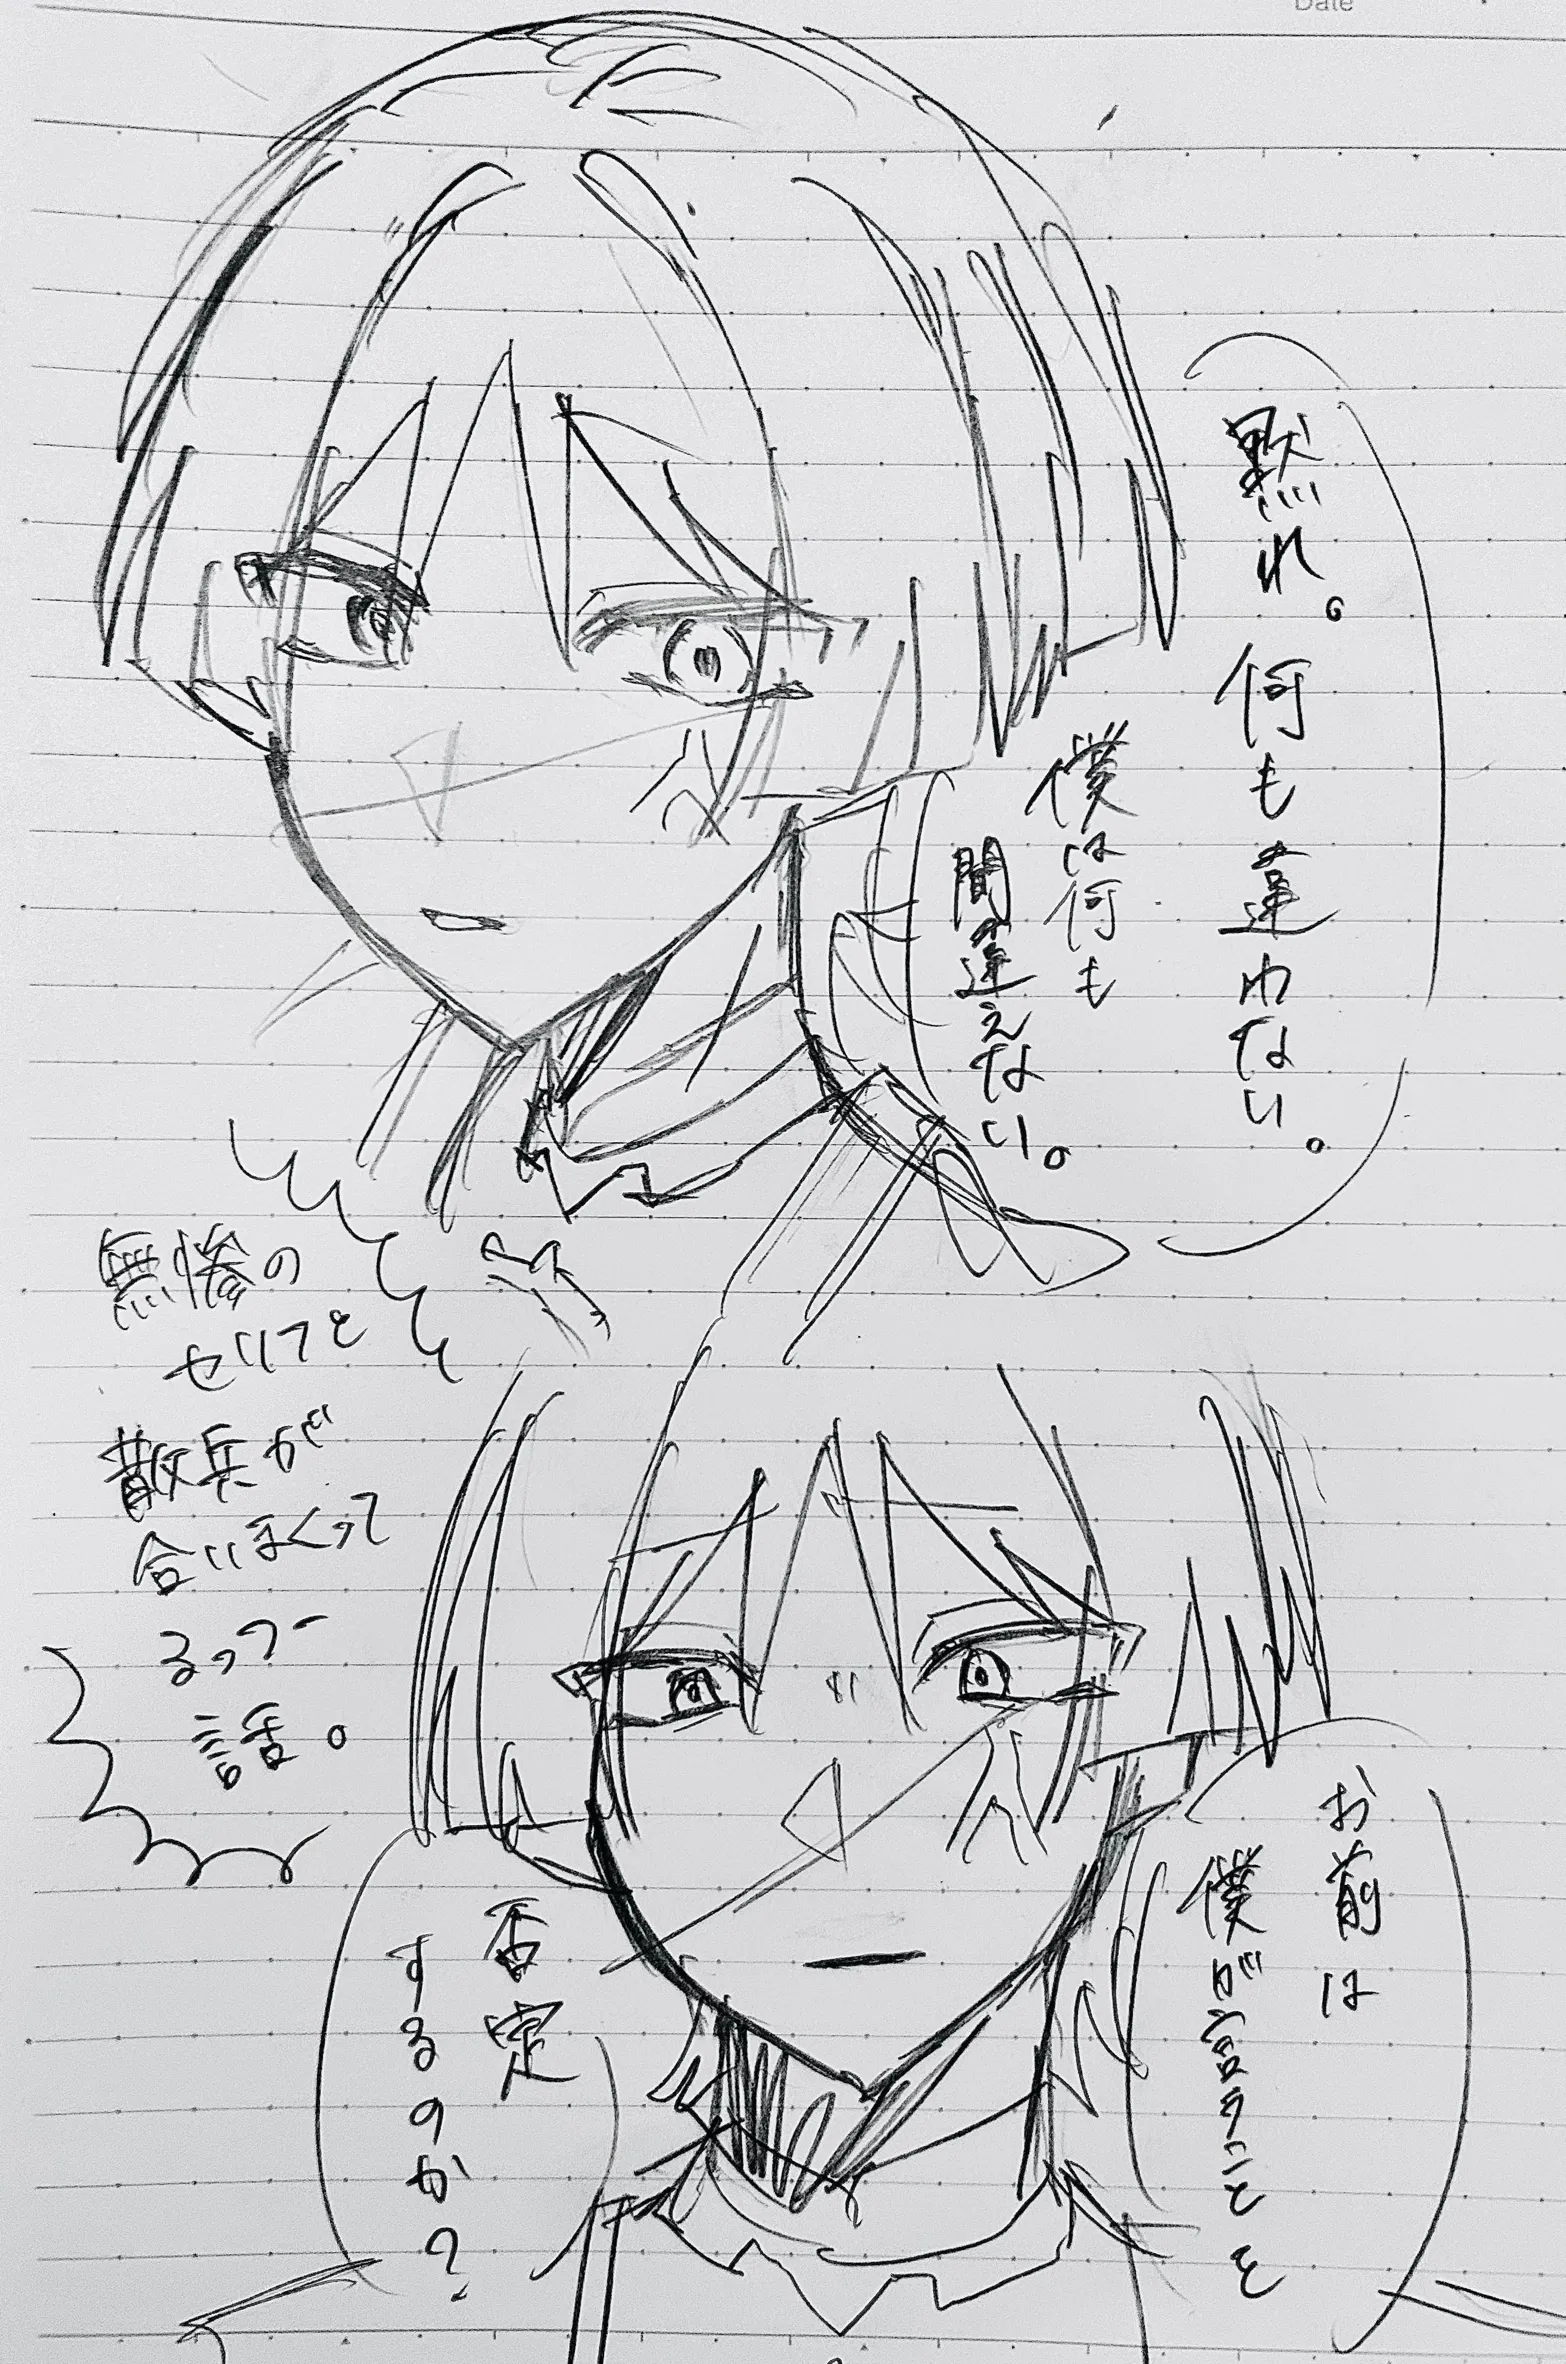 Date
黙れ。何も違わない。
僕は何も
間違えない。
無惨の
セリフを
散兵が
合いまくって
るってー
話。
お前は
僕が言うことを
否定
するのか?